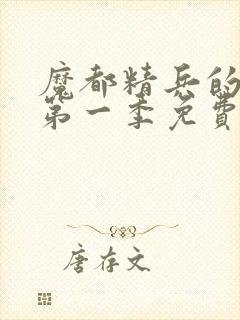 魔都精兵的
第一季免費
唐存文